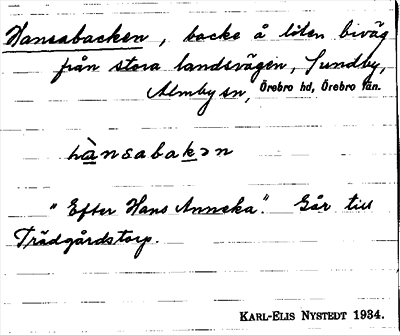 Hansabacken, backe å liten biväg
från stora landsvägen, Sundby,
Almby sn, Örebro hd, Örebro län.
hànsabakən
"Efter Hans Anneka". Går till
Trädgårdstorp.
KARL-ELIS NYSTEDT 1934.